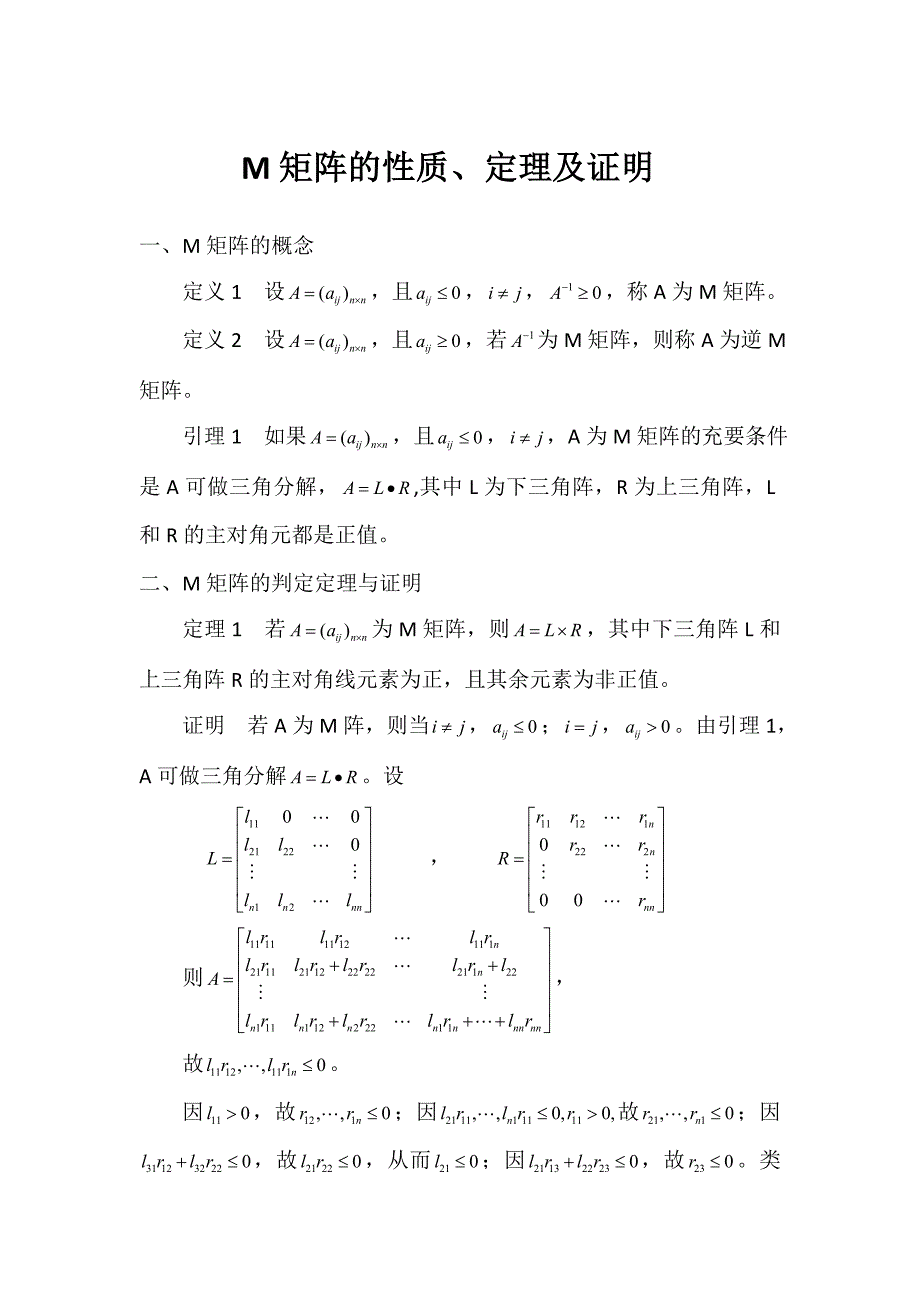 M 矩阵的性质、定理及证明
一、M 矩阵的概念
定义 1 设 $A=(a_{ij})_{n\times n}$，且 $a_{ij}\leq 0$，$i\neq j$，$A^{-1}\geq 0$，称 A 为 M 矩阵。
定义 2 设 $A=(a_{ij})_{n\times n}$，且 $a_{ij}\geq 0$，若 $A^{-1}$ 为 M 矩阵，则称 A 为逆 M
矩阵。
引理 1 如果 $A=(a_{ij})_{n\times n}$，且 $a_{ij}\leq 0$，$i\neq j$，A 为 M 矩阵的充要条件
是 A 可做三角分解，$A=L\bullet R$,其中 L 为下三角阵，R 为上三角阵，L
和 R 的主对角元都是正值。
二、M 矩阵的判定定理与证明
定理 1 若 $A=(a_{ij})_{n\times n}$ 为 M 矩阵，则 $A=L\times R$，其中下三角阵 L 和
上三角阵 R 的主对角线元素为正，且其余元素为非正值。
证明 若 A 为 M 阵，则当 $i\neq j$，$a_{ij}\leq 0$；$i=j$，$a_{ij}>0$。由引理 1，
A 可做三角分解 $A=L\bullet R$。设
$L=\begin{bmatrix} l_{11} & 0 & \cdots & 0 \\ l_{21} & l_{22} & \cdots & 0 \\ \vdots & & & \vdots \\ l_{n1} & l_{n2} & \cdots & l_{nn} \end{bmatrix}$ ， $R=\begin{bmatrix} r_{11} & r_{12} & \cdots & r_{1n} \\ 0 & r_{22} & \cdots & r_{2n} \\ \vdots & & & \vdots \\ 0 & 0 & \cdots & r_{nn} \end{bmatrix}$
则 $A=\begin{bmatrix} l_{11}r_{11} & l_{11}r_{12} & \cdots & l_{11}r_{1n} \\ l_{21}r_{11} & l_{21}r_{12}+l_{22}r_{22} & \cdots & l_{21}r_{1n}+l_{22} \\ \vdots & & & \vdots \\ l_{n1}r_{11} & l_{n1}r_{12}+l_{n2}r_{22} & \cdots & l_{n1}r_{1n}+\cdots+l_{nn}r_{nn} \end{bmatrix}$，
故 $l_{11}r_{12},\cdots,l_{11}r_{1n}\leq 0$。
因 $l_{11}>0$，故 $r_{12},\cdots,r_{1n}\leq 0$；因 $l_{21}r_{11},\cdots,l_{n1}r_{11}\leq 0,r_{11}>0,$故 $r_{21},\cdots,r_{n1}\leq 0$；因
$l_{31}r_{12}+l_{32}r_{22}\leq 0$，故 $l_{21}r_{22}\leq 0$，从而 $l_{21}\leq 0$；因 $l_{21}r_{13}+l_{22}r_{23}\leq 0$，故 $r_{23}\leq 0$。类